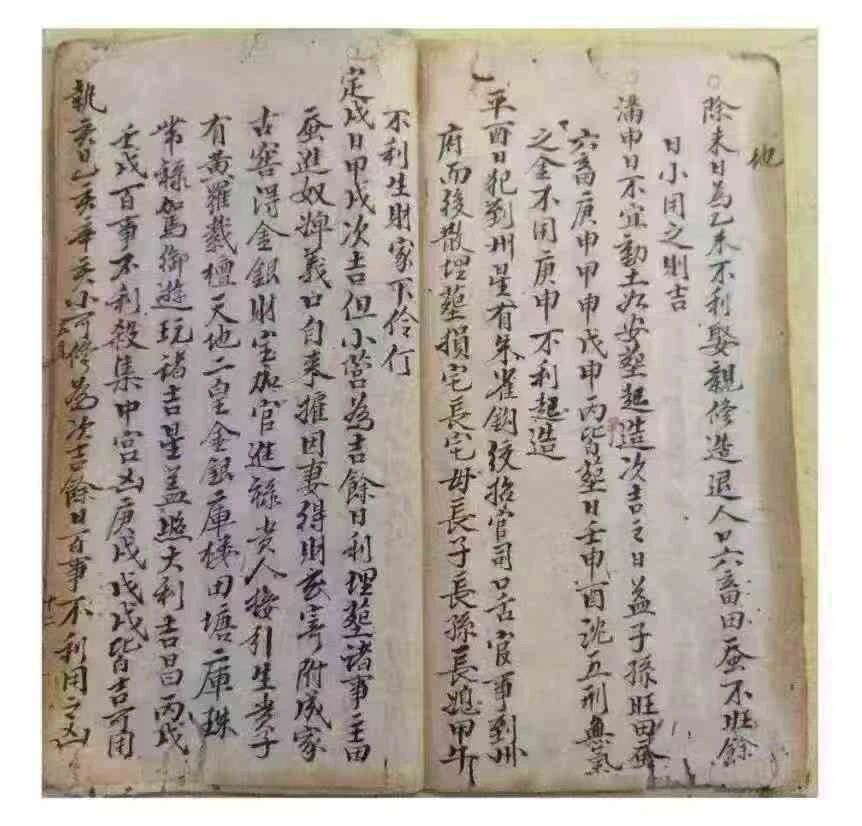 地
除未日為乙未不利娶親修造退人口六畜田蚕不旺餘
日小用之則吉
滿申日不宜動土如安塟起造次吉之日益子孫旺田蚕
六畜庚申甲申戊申丙皆塟日壬申酉沈五刑無氣
之金不用庚申不利起造
平酉日犯到州星有朱雀鈎絞招官司口舌官事到州
府而後散埋塟損宅長宅母長子長孫長媳甲午
不利生財家下伶仃
定戌日甲戌次吉但小営為吉餘日利埋塟諸事主田
蚕進奴婢義口自来擢因妻得財寄附成家
古窖得金銀財宝加官進禄貴人接引生貴子
有黄羅蓋檀天地二皇金銀庫楼田塘庫珠
常禄馬御遊玩諸吉星盖照大利吉曰丙戌
壬戌百事不利殺集中宮凶庚戌戊戌皆吉可用
執亥日乙亥辛亥小可修為次吉餘日百事不利用之凶
十二